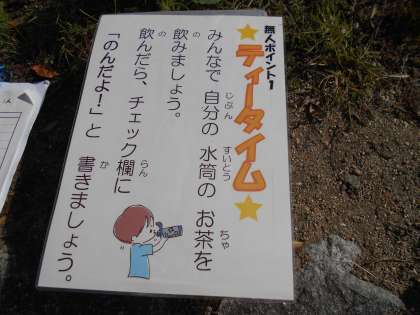 無人ポイント1
★ティータイム★
じぶん すいとう ちゃ
みんなで 自分の 水筒の お茶を
の
飲みましょう。
の らん
飲んだら、チェック欄に
か
「のんだよ！」と 書きましょう。